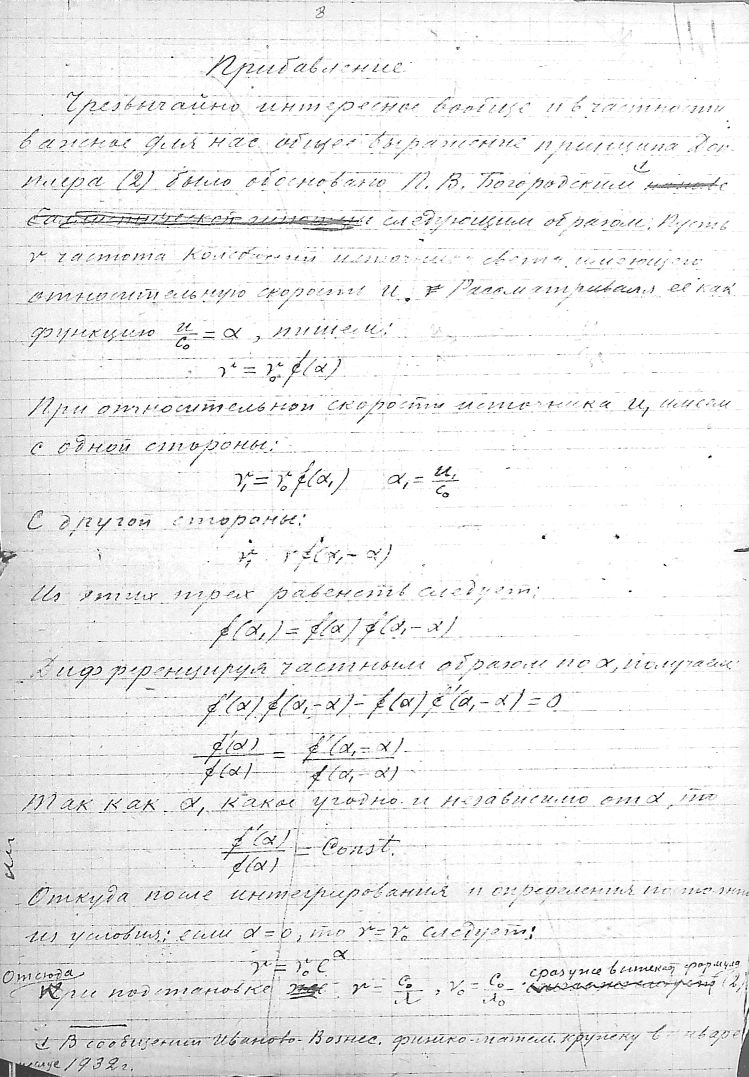 3
Прибавление
Чрезвычайно интересное вообще и в частности
важное для нас общее выражение принципа Доп-
плера (2) было обосновано П. В. Богородским 1
следующим образом. Пусть
ν частота колебаний источника света, имеющего
относительную скорость u. Рассматривая её как
функцию u/c₀ = α, пишем:
ν = ν₀ f(α)
При относительной скорости источника u₁ имеем
с одной стороны:
ν₁ = ν₀ f(α₁) α₁ = u₁/c₀
С другой стороны:
ν₁ ν f(α₁ – α)
Из этих трех равенств следует:
f(α₁) = f(α) f(α₁ – α)
Дифференцируя частным образом по α, получаем:
f'(α) f(α₁ – α) – f(α) f'(α₁ – α) = 0
f'(α)/f(α) = f'(α₁ – α)/f(α₁ – α)
Так как α₁ какое угодно и независимо от α, то
f'(α)/f(α) = Const.
Откуда после интегрирования и определения постоянн
из условия: если α = 0, то ν = ν₀ следует:
ν = ν₀ e^α
Отсюда сразу же вытекает формула
при подстановке ν = c₀/λ, ν₀ = c₀/λ₀ (2)
1 В сообщении Иваново-Вознес. физико-матем. кружку в январе
1932 г.